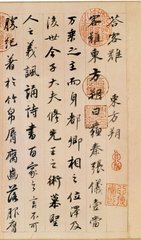 答客難
東方朔
客難東方朔曰蘇秦張儀壹當
萬乘之主而身都卿相之位澤及
後世今子大夫脩先王之術慕聖
人之義諷誦詩書百家之言不可
勝記著於竹帛脣腐齒落服膺